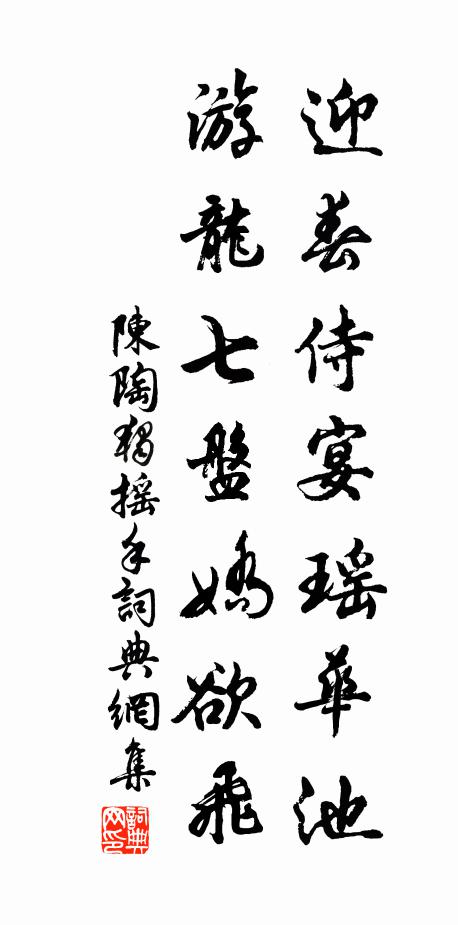 迎春侍宴瑶華池
游龍七盤嬌欲飛
陳陶獨摇手詞典網集
詞典网印